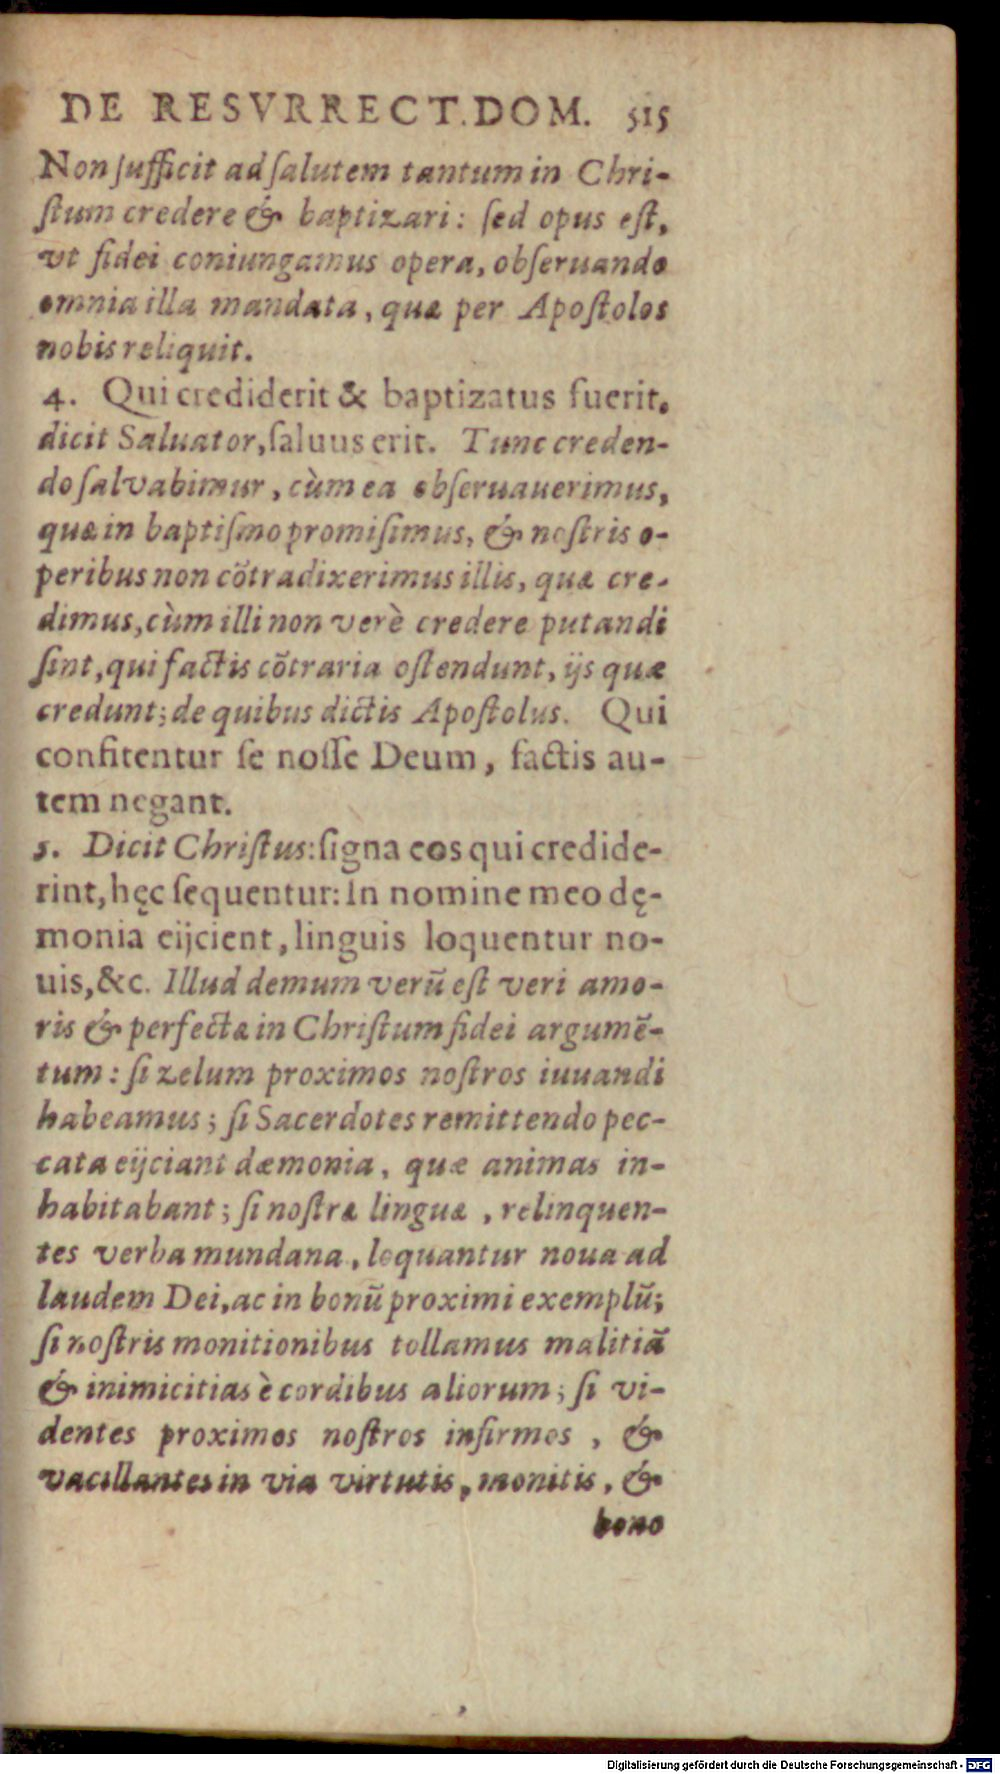 DE RESVRRECT.DOM. 515
Non ſufficit ad ſalutem tantum in Chri-
ſtum credere & baptizari: ſed opus eſt,
vt fidei coniungamus opera, obſeruando
omnia illa mandata, quæ per Apoſtolos
nobis reliquit.
4. Qui crediderit & baptizatus fuerit,
dicit Saluator, ſaluus erit. Tunc creden-
do ſalvabimur, cùm ea obſeruauerimus,
quæ in baptiſmo promiſimus, & noſtris o-
peribus non cõtradixerimus illis, quæ cre-
dimus, cùm illi non verè credere putandi
ſint, qui factis cõtraria oſtendunt, ijs quæ
credunt; de quibus dictis Apoſtolus. Qui
confitentur ſe noſſe Deum, factis au-
tem negant.
5. Dicit Chriſtus: ſigna eos qui credide-
rint, hęc ſequentur: In nomine meo dę-
monia eijcient, linguis loquentur no-
uis, &c. Illud demum verũ eſt veri amo-
ris & perfectæ in Chriſtum fidei argumẽ-
tum: ſi zelum proximos noſtros iuuandi
habeamus; ſi Sacerdotes remittendo pec-
cata eijciant dæmonia, quæ animas in-
habitabant; ſi noſtræ linguæ, relinquen-
tes verba mundana, loquantur noua ad
laudem Dei, ac in bonũ proximi exemplũ;
ſi noſtris monitionibus tollamus malitiã
& inimicitias è cordibus aliorum; ſi vi-
dentes proximos noſtros infirmos, &
vacillantes in via virtutis, monitis, &
bono
Digitalisierung gefördert durch die Deutsche Forschungsgemeinschaft - DFG